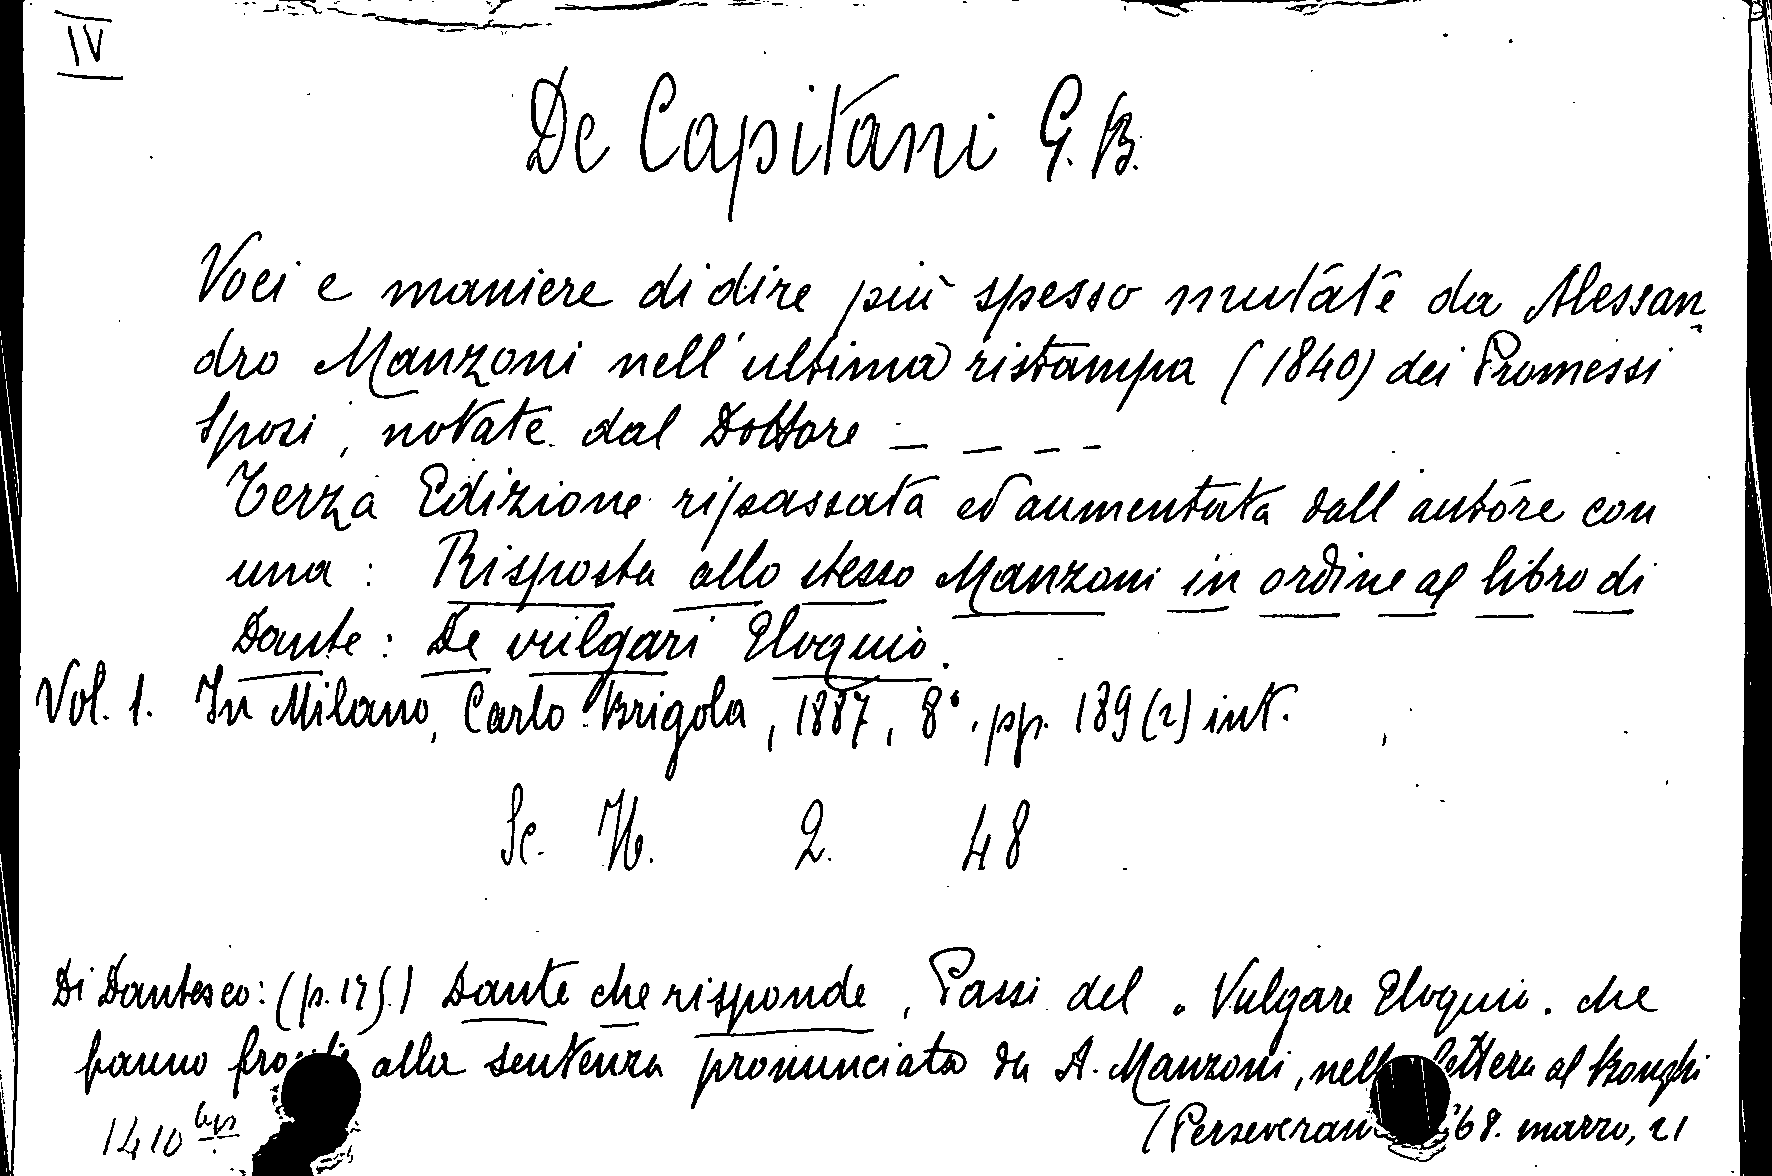 IV
De Capitani G. B.
Voci e maniere di dire più spesso mutate da Alessan
dro Manzoni nell'ultima ristampa (1840) dei Promessi
Sposi, notate dal Dottore – – – –
Terza Edizione ripassata ed aumentata dall'autore con
una: Risposta allo stesso Manzoni in ordine al libro di
Dante: De vulgari Eloquio.
Vol. 1. In Milano, Carlo Brigola, 1887, 8°, pp. 189 (2) int.
Sc. N. 2. 48
Di Dantesco: (p. 175.) Dante che risponde, Passi del "Vulgare Eloquio" che
fanno fronte alla sentenza pronunciata da A. Manzoni, nella lettera al Bonghi
1410 bis (Perseveran '68. marzo, 21